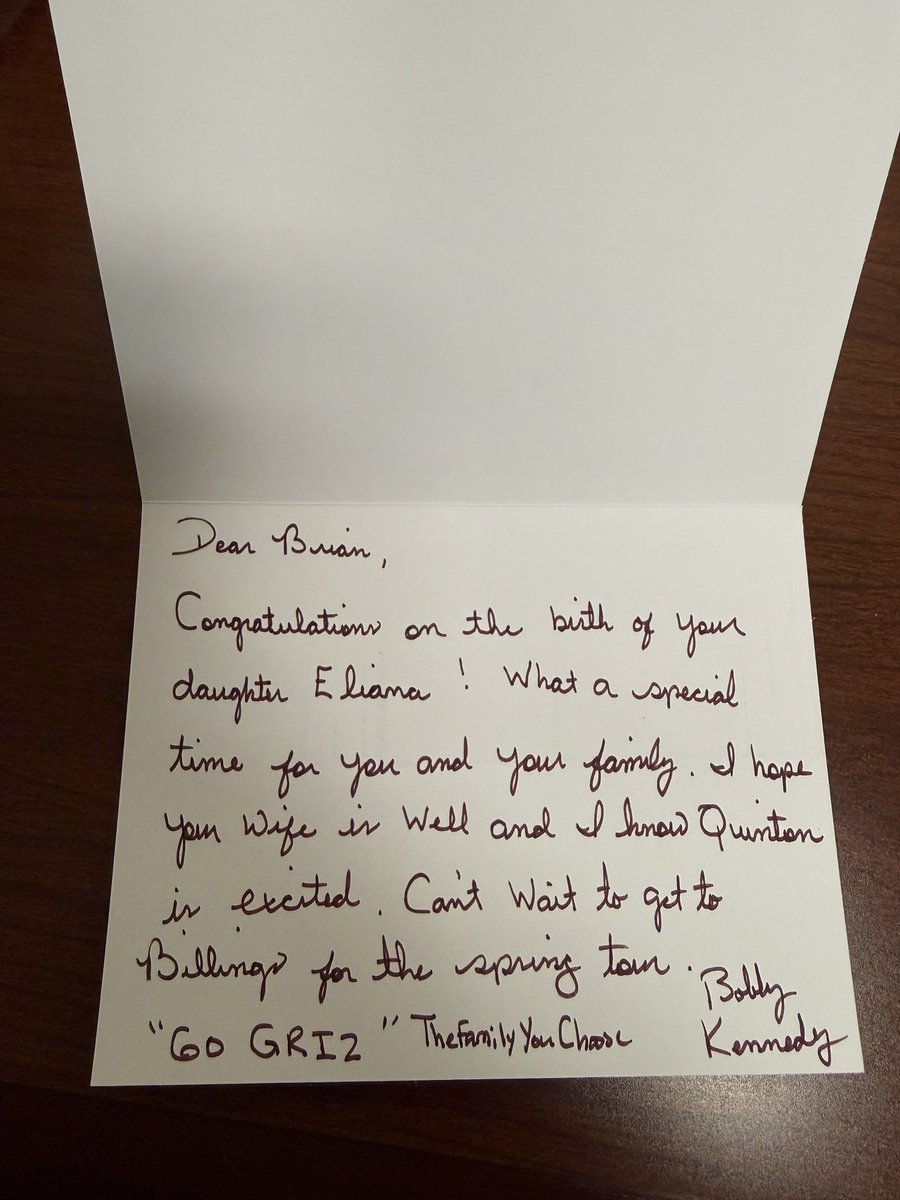 Dear Brian,
Congratulations on the birth of your
daughter Eliana! What a special
time for you and your family. I hope
your Wife is Well and I know Quinton
is excited. Can't Wait to get to
Billings for the spring tour.
"GO GRIZ" TheFamilyYouChoose
Bobby
Kennedy